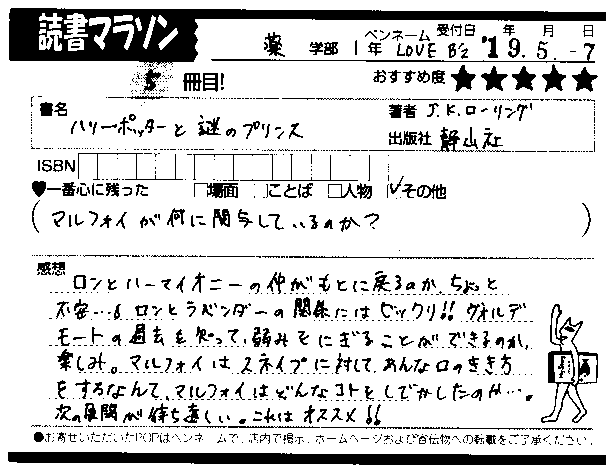 読書マラソン
薬 学部 1年 ペンネーム LOVE B'z 受付日 年 月 日 '19.5.-7
5 冊目! おすすめ度 ★★★★★
書名 ハリーポッターと謎のプリンス
著者 J.K.ローリング
出版社 静山社
ISBN
♥一番心に残った □場面 □ことば □人物 ☑その他
(マルフォイが何に関与しているのか?)
感想
ロンとハーマイオニーの仲がもとに戻るのか、ちょっと
不安…。ロンとラベンダーの関係にはビックリ!!ヴォルデ
モートの過去を知って、弱みをにぎることができるのか、
楽しみ。マルフォイはスネイプに対して、あんな口のきき方
をするなんて、マルフォイはどんなコトをしでかしたのか…。
次の展開が待ち遠しい。これはオススメ!!
●お寄せいただいたPOPはペンネームで、店内で掲示、ホームページおよび宣伝物への転載をご了承ください。